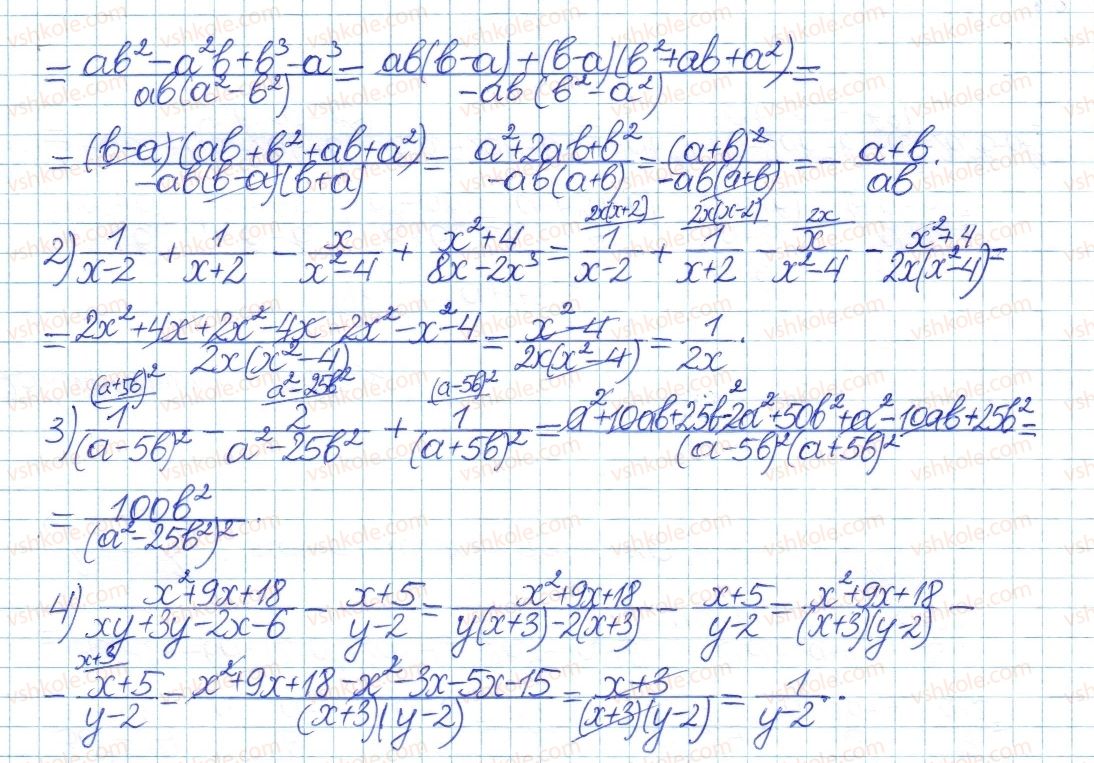 = (ab² - a²b + b³ - a³)/(ab(a² - b²)) = (ab(b-a) + (b-a)(b² + ab + a²))/(-ab(b² - a²)) =
= ((b-a)(ab + b² + ab + a²))/(-ab(b-a)(b+a)) = (a² + 2ab + b²)/(-ab(a+b)) = (a+b)²/(-ab(a+b)) = - (a+b)/(ab).
2) 1/(x-2) + 1/(x+2) - x/(x²-4) + (x²+4)/(8x-2x³) = 2x(x+2) 1/(x-2) + 2x(x-2) 1/(x+2) - 2x x/(x²-4) - (x²+4)/(2x(x²-4)) =
= (2x² + 4x + 2x² - 4x - 2x² - x² - 4)/(2x(x²-4)) = (x²-4)/(2x(x²-4)) = 1/(2x).
3) (a+5b)² 1/(a-5b)² - a²-25b² 2/(a²-25b²) + (a-5b)² 1/(a+5b)² = (a²+10ab+25b²-2a²+50b²+a²-10ab+25b²)/((a-5b)²(a+5b)²) =
= 100b²/(a²-25b²)².
4) (x²+9x+18)/(xy+3y-2x-6) - (x+5)/(y-2) = (x²+9x+18)/(y(x+3)-2(x+3)) - (x+5)/(y-2) = (x²+9x+18)/((x+3)(y-2)) -
- x+3 (x+5)/(y-2) = (x²+9x+18-x²-3x-5x-15)/((x+3)(y-2)) = (x+3)/((x+3)(y-2)) = 1/(y-2).
vshkole.com